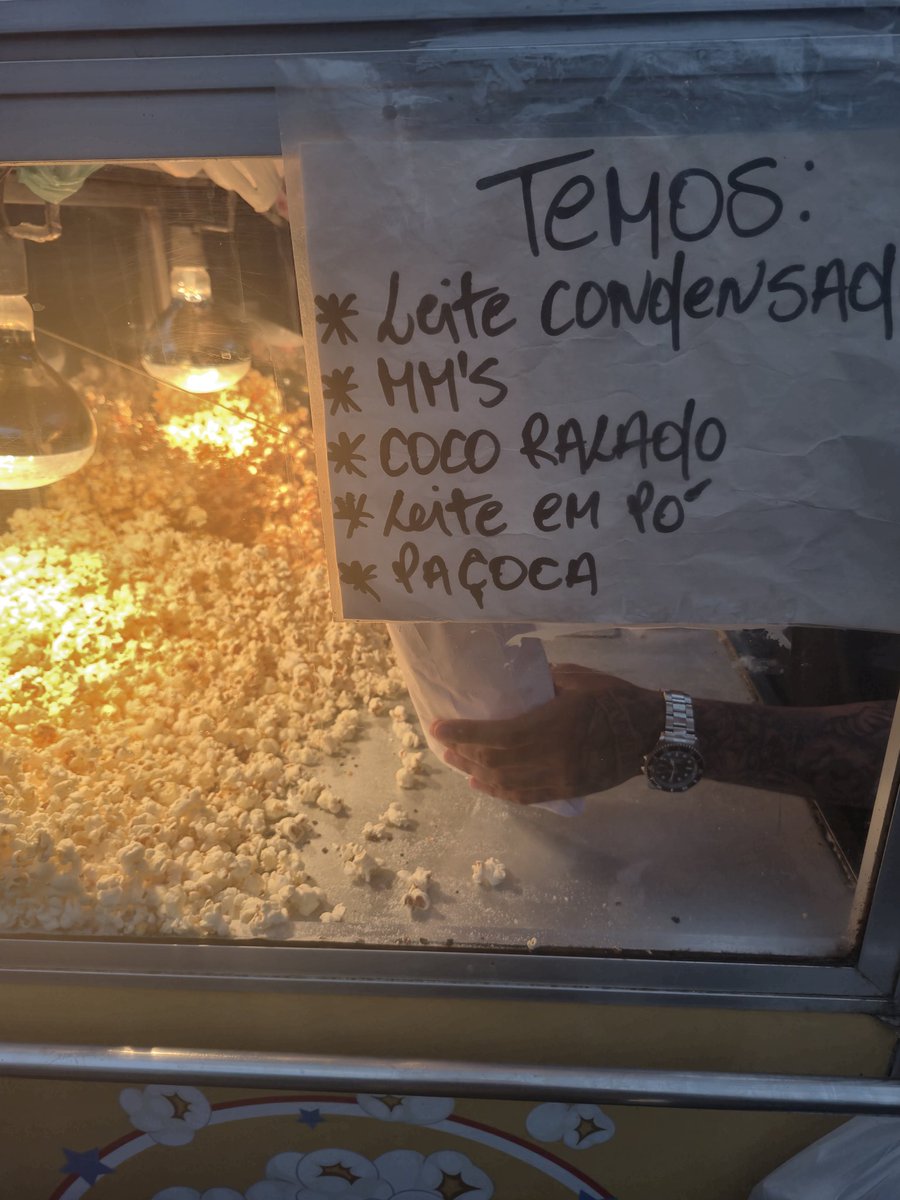 TEMOS:
* Leite CONDENSAD
* MM'S
* COCO RALADO
* Leite EM PÓ
* PAÇOCA